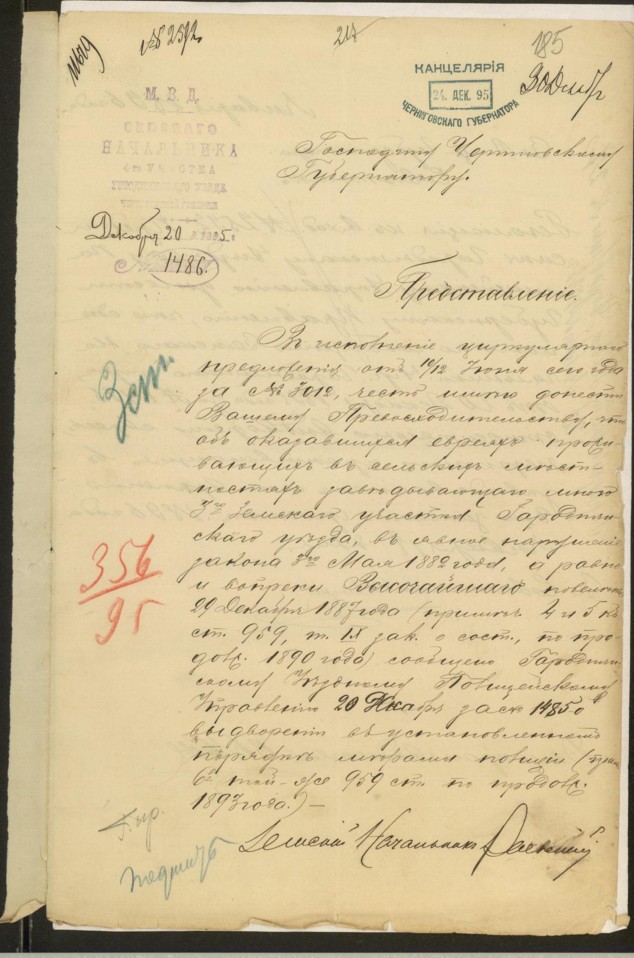 № 2592
217
185
КАНЦЕЛЯРІЯ
24. ДЕК. 95
ЧЕРНИГОВСКАГО ГУБЕРНАТОРА
М. В. Д.
ЗЕМСКАГО
НАЧАЛЬНИКА
УЧАСТКА
ГОРОДНИЦКАГО УѢЗДА
ЧЕРНИГОВСКОЙ ГУБЕРНІИ
Декабря 20 1895 г.
№ 1486.
Господину Черниговскому
Губернатору.
Представленіе.
Въ исполненіе циркулярнаго
предложенія отъ 10/12 Іюня сего года
за № 3012, честь имѣю донести
Вашему Превосходительству, что
объ оказавшихся евреяхъ прожи-
вающихъ въ сельскихъ мѣст-
ностяхъ завѣдывающаго мною
Земскаго участка Городниц-
скаго уѣзда, въ явное нарушеніе
закона 3го Мая 1882 года, а равно
и вопреки Высочайшаго повелѣнія
29 Декабря 1887 года (примѣч. 4 и 5 къ
ст. 959, т. IX зак. о сост., по про-
долж. 1890 года) сообщено Городниц-
скому Уѣздному Полицейскому
Управленію 20 Декабря за № 1485 о
выдвореніи въ установленномъ
порядкѣ мѣрами полиціи (прим.
6е той-же 959 ст. по продолж.
1893 года.) —
Земскій Начальникъ
3 ст.
356
95